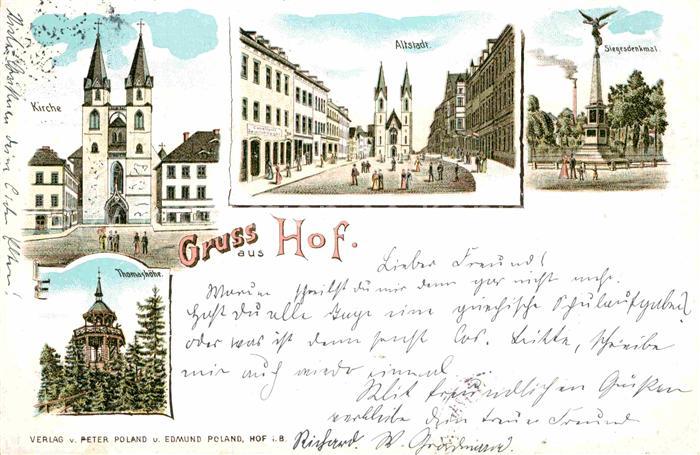 Kirche
Altstadt.
Siegesdenkmal.
Gruss aus Hof.
Thomashöhe.
Lieber Freund!
Warum schreibst du mir denn gar nicht mehr.
Hast du alle Tage eine griechische Schulaufgabe?
oder was ist denn sonst los. Bitte, schreibe
mir auch wieder einmal
Mit freundlichen Grüßen
verbleibe dein treuer Freund
Richard. W.
VERLAG v. PETER POLAND u. EDMUND POLAND, HOF i. B.